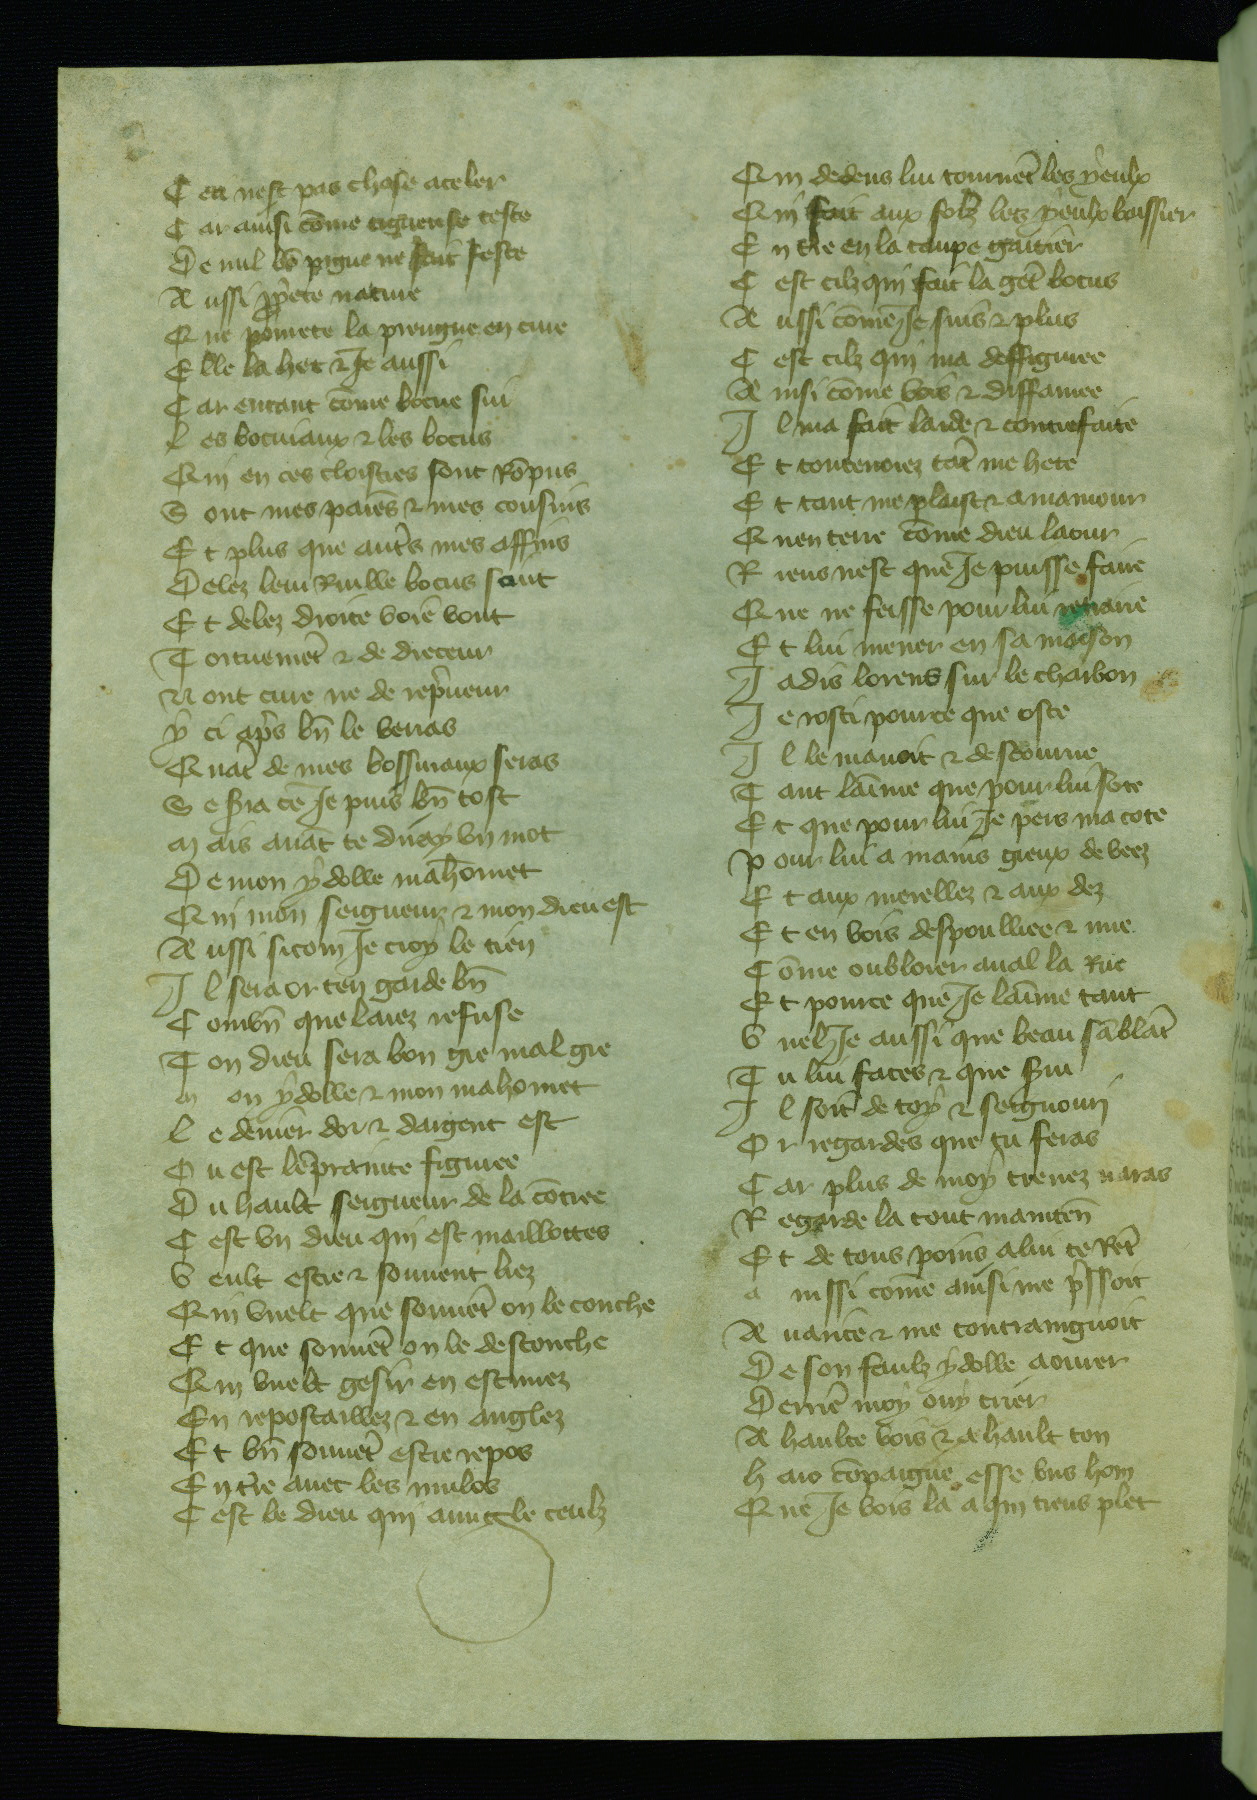 C eci nest pas chose a celer
C ar ainsi cōme tigneuse teste
D e nul bō pigne ne fait feste
A ussi pp̄rete nature
Q ue pōmete la prengne en cure
E lle la het ⁊ Je aussi
C ar entant cōme bocue sui
L es bocuiaux ⁊ les bocus
Q ui en ces cloistres sont Rōpus
S ont mes parēs ⁊ mes cousins
E t plus que aut̄s mes affins
D elez leur Riulle bocus sont
E t delez droite voiē vont
T ortuemēt ⁊ de dreceur
N ont cure ne de rep̄ueur
Y ci ap̄s bn̄ le verras
Q uāt de mes bossuiaux seras
S e s̄ra ce Je puis bn̄ tost
M ais auāt te diray vn mot
D e mon ydolle mahomet
Q ui mon seigneur ⁊ mon dieu est
A ussi sicom Je croy le tien
I l sera or ten garde bn̄
C ombn̄ que laiez refuse
T on dieu sera bon gre mal gre
m on ydolle ⁊ mon mahomet
L e denier dor ⁊ dargent est
O u est lēprainte figuree
D u hault seigneur de la cōtree
C est vn dieu qui est maillottes
V eult estre ⁊ souuent liez
Q ui vuelt que souuēt on le couche
E t que souuēt on le descouche
Q ui vuelt gesir en estuiez
E n repostaillez ⁊ en anglez
E t bn̄ souuēt estre repos
E ntre auec les mulos
C est le dieu qui auugle ceulz
Q ui dedens lui tournēt les yeulx
Q ui fait aux folz les yeulx baissier
E n tre en la taupe gaitier
C est cilz qui fait la gēt bocus
A ussi cōme Je suis ⁊ plus
C est cilz qui ma deffiguree
A insi cōme vois ⁊ diffamee
I l ma fait laide ⁊ contrefaite
E t toutenoiez tāt me hete
E t tant me plaist ⁊ a mamour
Q uen terre cōme dieu laour
R iens nest que Je puisse faire
Q ue ne feisse pour lui retraire
E t lui mener en sa maison
I adis lorens sur le charbon
I e rosti pource que oste
I l le mauoit ⁊ destourne
T ant laīme que pour lui sote
E t que pour lui Je pers ma cote
P our lui a mains gieux de veez
E t aux merellez ⁊ aux dez
E t en vois despoulliee ⁊ nue
C ōme oubloier aual la Rue
E t pource que Je laīme tant
V uelz Je aussi que beau sāblāt
T u lui faces ⁊ que s̄ui
I l soit de toy ⁊ seignouri
O r regardes que tu feras
C ar plus de moy treuez naras
R egarde la tout mainten̄
E t de tous poins a lui te Rēt
a inssi cōme ainsi me p̄ssoit
A uarice ⁊ me contraingnoit
D e son faulz ydolle aourer
D erriē moy ouy crier
A haulte vois ⁊ a hault ton
h aio cōpaigne esse vns hom
Q ue Je vois la a qui tiens plet